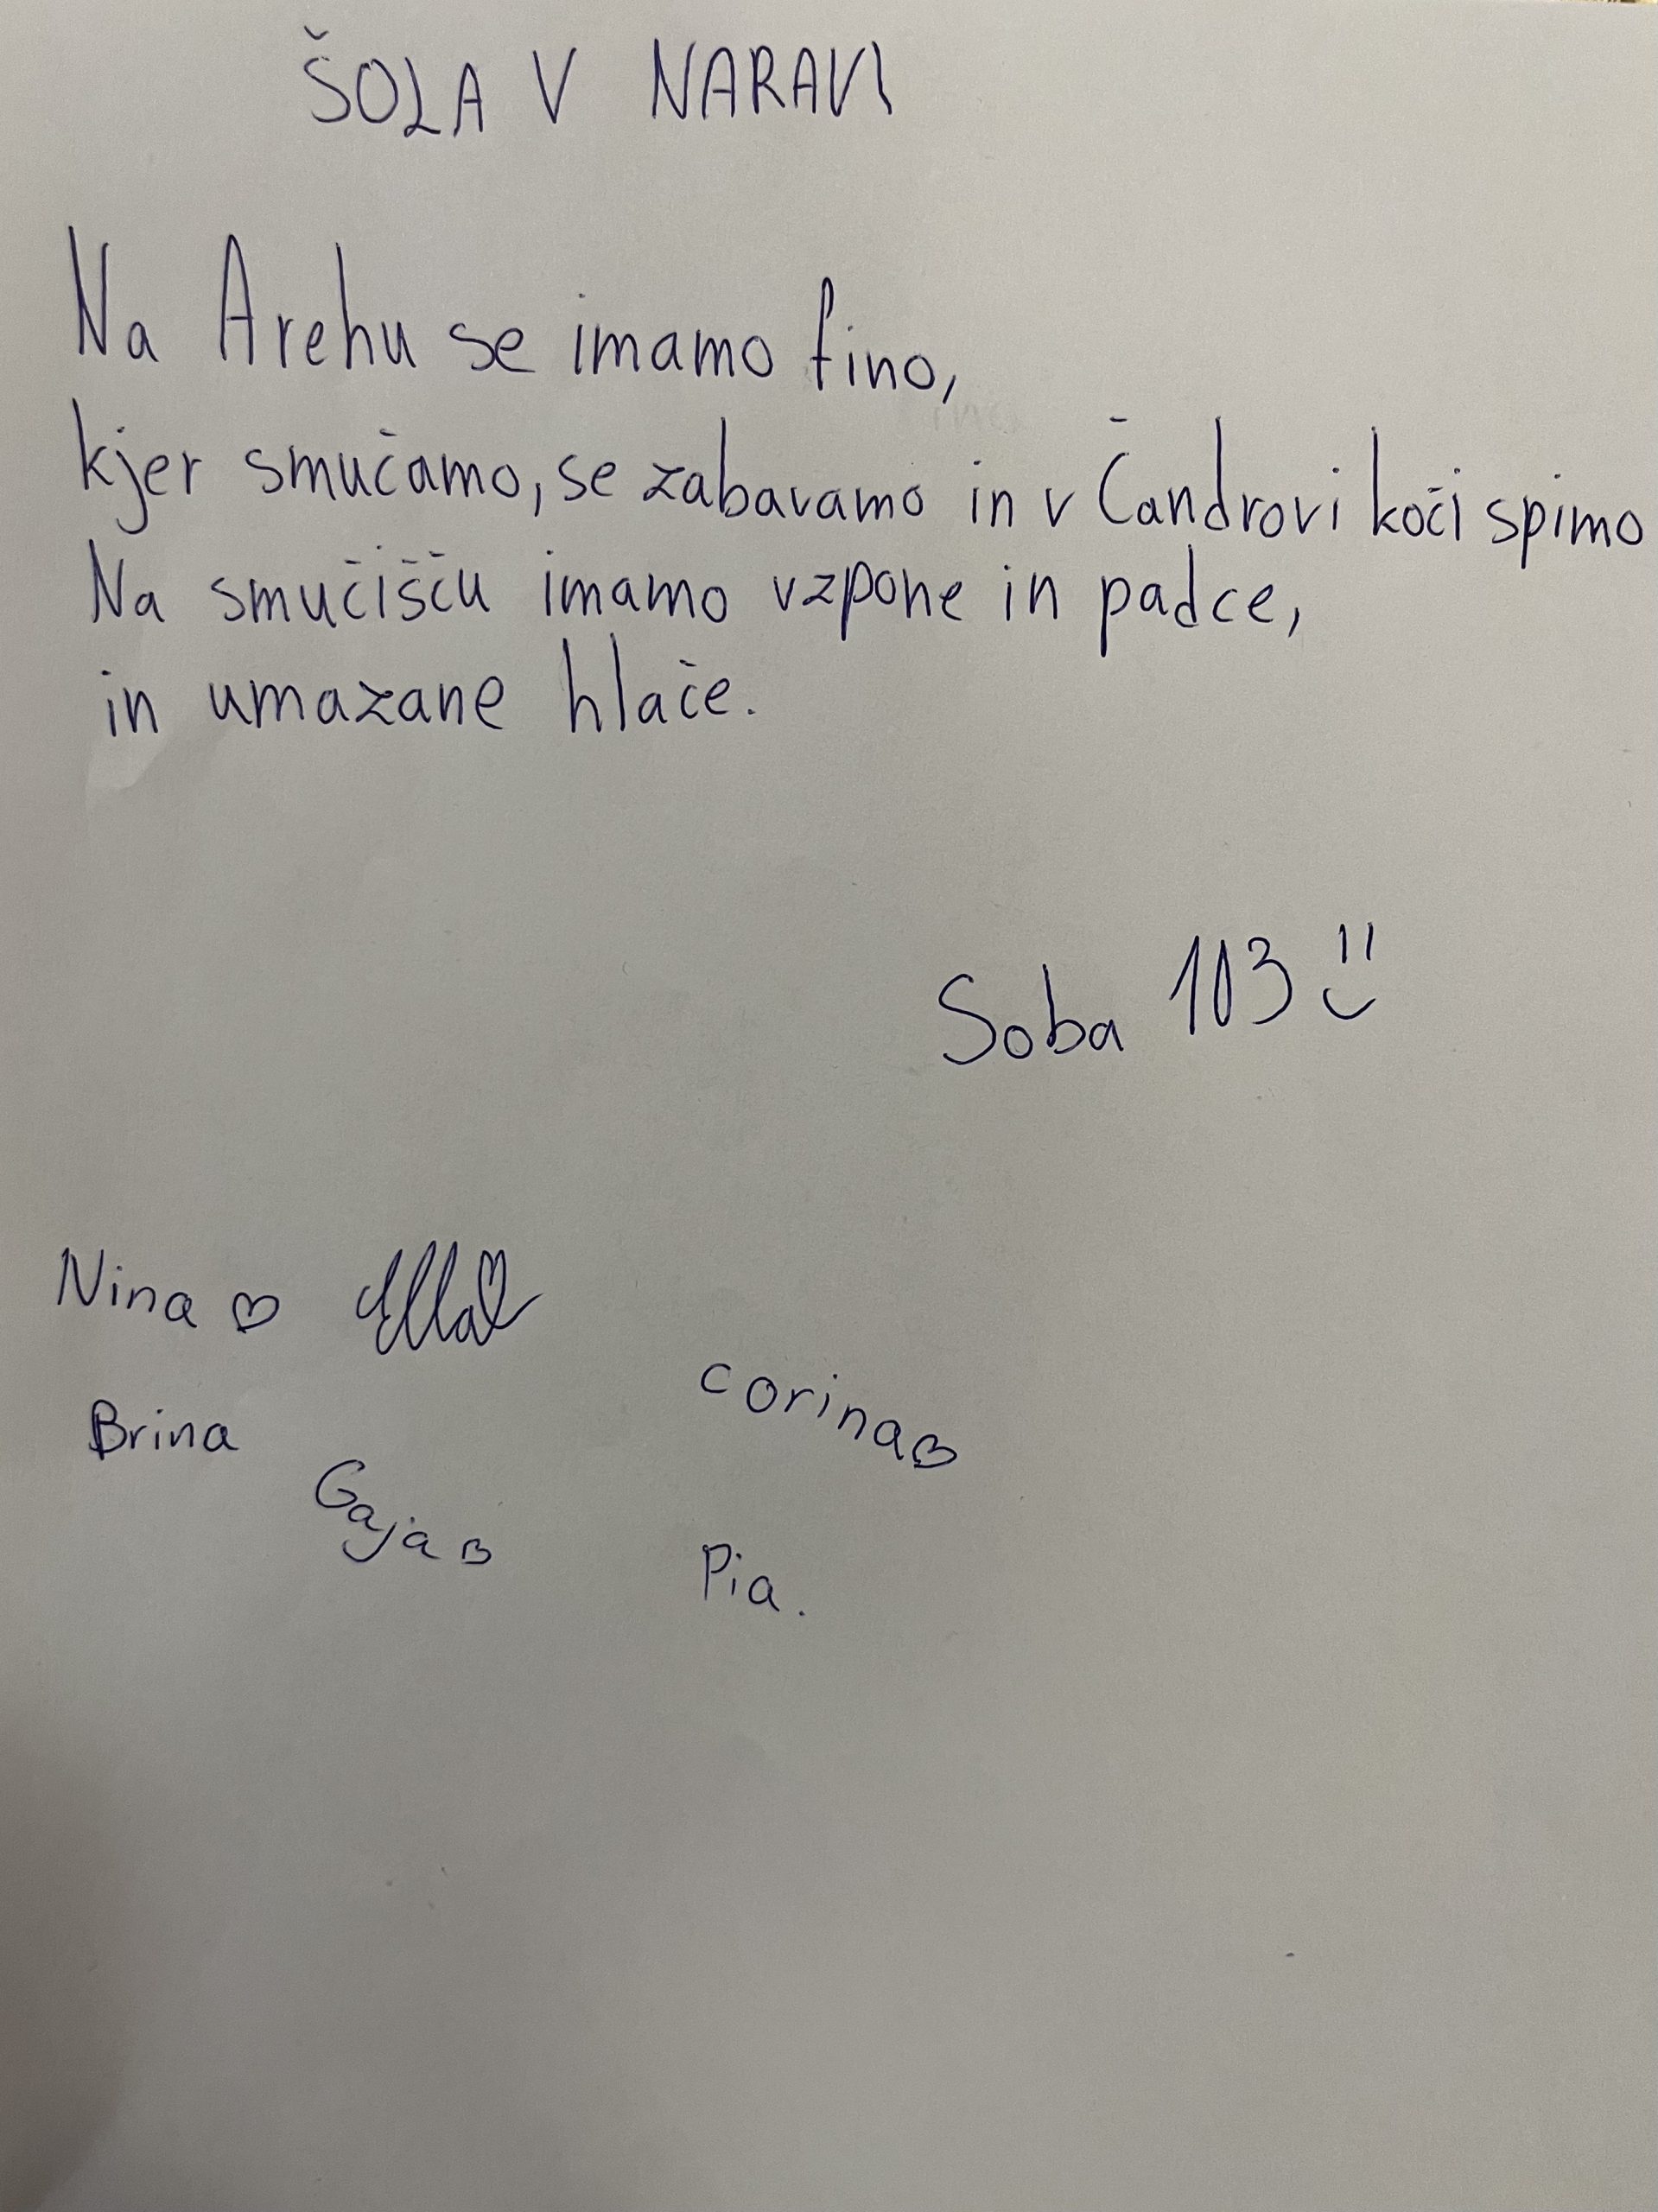 ŠOLA V NARAVI
Na Arehu se imamo fino,
kjer smučamo, se zabavamo in v Čandrovi koči spimo
Na smučišču imamo vzpone in padce,
in umazane hlače.
Soba 103
Nina Ella
Corina
Brina
Gaja
Pia.